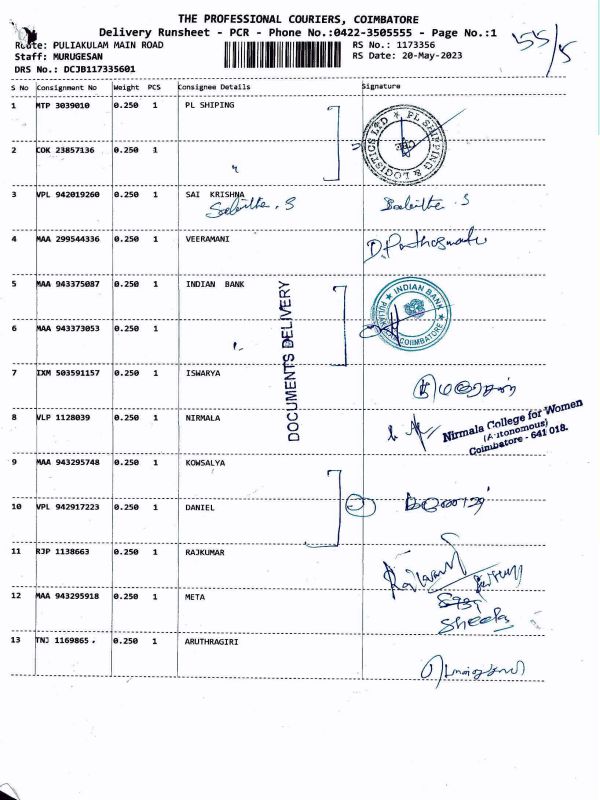 THE PROFESSIONAL COURIERS, COIMBATORE
Delivery Runsheet - PCR - Phone No.:0422-3505555 - Page No.:1
Route: PULIAKULAM MAIN ROAD RS No.: 1173356
Staff: MURUGESAN RS Date: 20-May-2023
DRS No.: DCJB117335601
S No Consignment No Weight PCS Consignee Details Signature
1 MTP 3039010 0.250 1 PL SHIPING
PL SHIPPING & LOGISTICS LTD
CBE
2 COK 23857136 0.250 1
3 VPL 942019260 0.250 1 SAI KRISHNA
4 MAA 299544336 0.250 1 VEERAMANI
5 MAA 943375087 0.250 1 INDIAN BANK
INDIAN BANK
COIMBATORE
6 MAA 943373053 0.250 1
DOCUMENTS DELIVERY
7 IXM 503591157 0.250 1 ISWARYA
8 VLP 1128039 0.250 1 NIRMALA
Nirmala College for Women
(Autonomous)
Coimbatore - 641 018.
9 MAA 943295748 0.250 1 KOWSALYA
10 VPL 942917223 0.250 1 DANIEL
11 RJP 1138663 0.250 1 RAJKUMAR
12 MAA 943295918 0.250 1 META
Sheela
13 TNJ 1169865 0.250 1 ARUTHRAGIRI